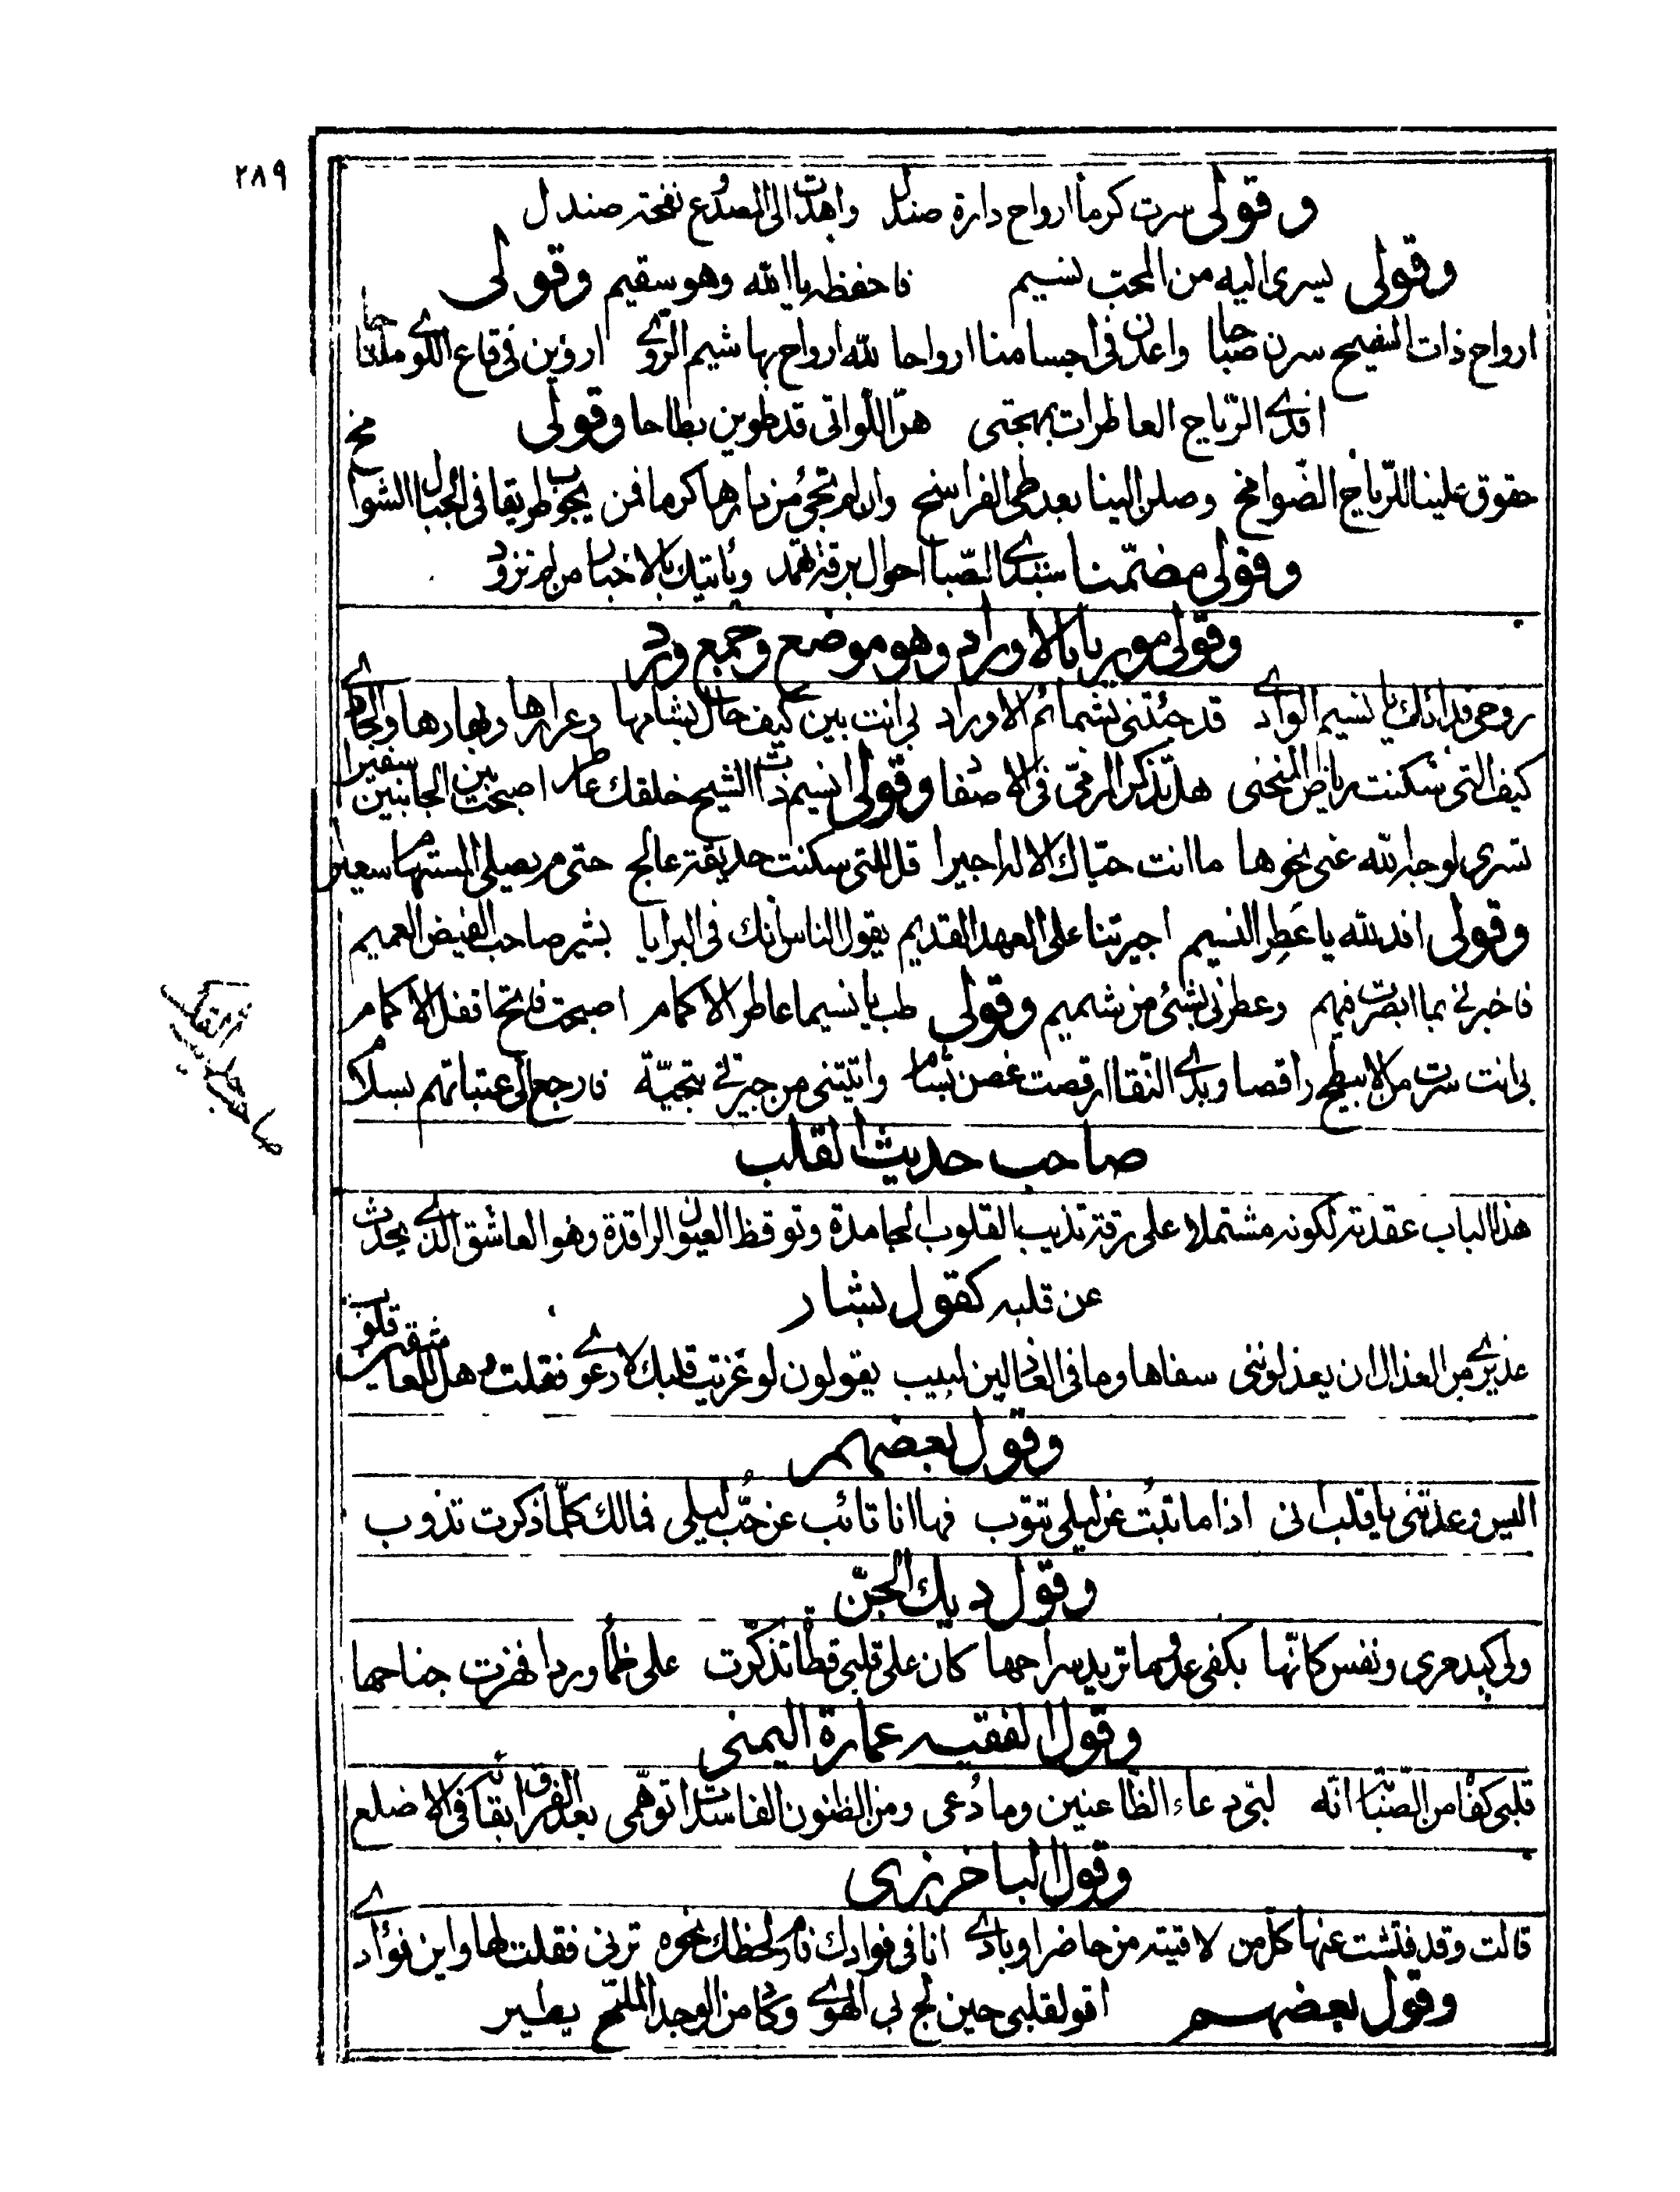 ٢٨٩
وقولى سرت كرما ارواح دارة صندل واهدت الى المصدوع نفحة صندل
وقولى يسرى اليه من المحب نسيم فاحفظه يا الله وهو سقيم وقولى
ارواح ذات الشيح سرن صباحا واعدن فى اجسامنا ارواحا لله ارواح بها شيم الروى اروين فى قاع اللوى ملتاحا
افدى الرياح العاطرات بمهجتى هن اللواتى قد طوين بطاحا وقولى
حقوق علينا للرياح الضوامخ وصلن الينا بعد طى الفراسخ وان لم تجئ من دارها كرما فمن يجوب طريقا فى الجبال الشوامخ
وقولى مضمنا ستبدى الصبا احوال برقة ثهمد ويأتيك بالاخبار من لم تزود
وقولى موريا بالاوراد وهو موضع وجمع ورد
روحى فدائك يا نسيم الوادى قد جئتنى بشمائم الاوراد بى انت بين كيف حال بشامها وعرارها وبهارها والجادى
كيف التى سكنت رياض المنحنى هل تذكر المرمى فى الاصفاد وقولى انسيم ذات الشيح خلقك عاطر اصبحت بين الجانبين سفيرا
تسرى لوجه الله عنى نحوها ما انت حياك الاله اجيرا قل للتى سكنت حديقة عالج حتى م يصلى المستهام سعيرا
وقولى افد لله يا عطر النسيم اجيرتنا على العهد القديم يقول الناس انك فى البرايا بشير صاحب الفيض العميم
فاخبرنى بما ابصرت فيهم وعطرنى بشئ من شميم وقولى طب يا نسيما عاطر الاكمام اصبحت فاتحا قفل الاكمام
بى انت سرت من الابيطح راقصا وبدى النقا ارقصت غصن بشام واتيتنى من جيرتى بتحية فارجع الى عتباتهم بسلام
صاحب حديث القلب
صاحب حديث القلب
هذا الباب عقدته لكونه مشتملا على رقة تذيب القلوب الجامدة وتوقظ العيون الراقدة وهو العاشق الذى يحدث
عن قلبه كقول بشار
عذيرى من العذال ان يعذلوننى سفاها وما فى العاذلين لبيب يقولون لو عزيت قلبك لارعوى فقلت وهل للعاشقين قلوب
وقول بعضهم
اليس وعدتنى يا قلب انى اذا ما تبت عن ليلى تتوب فها انا تائب عن حب ليلى فمالك كلما ذكرت تذوب
وقول ديك الجن
ولى كبد حرى ونفس كانها بكفى عدو ما تريد سراحها كان على قلبى قطاة تذكرت على ظمأ وردا فهزت جناحها
وقول الفقيه عمارة اليمنى
قلبى كفاه من الصبابة انه لبى دعاء الظاعنين وما دعى ومن الظنون الفاسدات توهمى بعد الفراق بقائه فى الاضلع
وقول الباخرزى
قالت وقد فتشت عنها كل من لاقيته من حاضر اوبادى انا فى فوادك فارم لحظك نحوه ترنى فقلت لها واين فؤادى
وقول بعضهم اقول لقلبى حين لج بى الهوى وكاد من الوجد الملح يطير